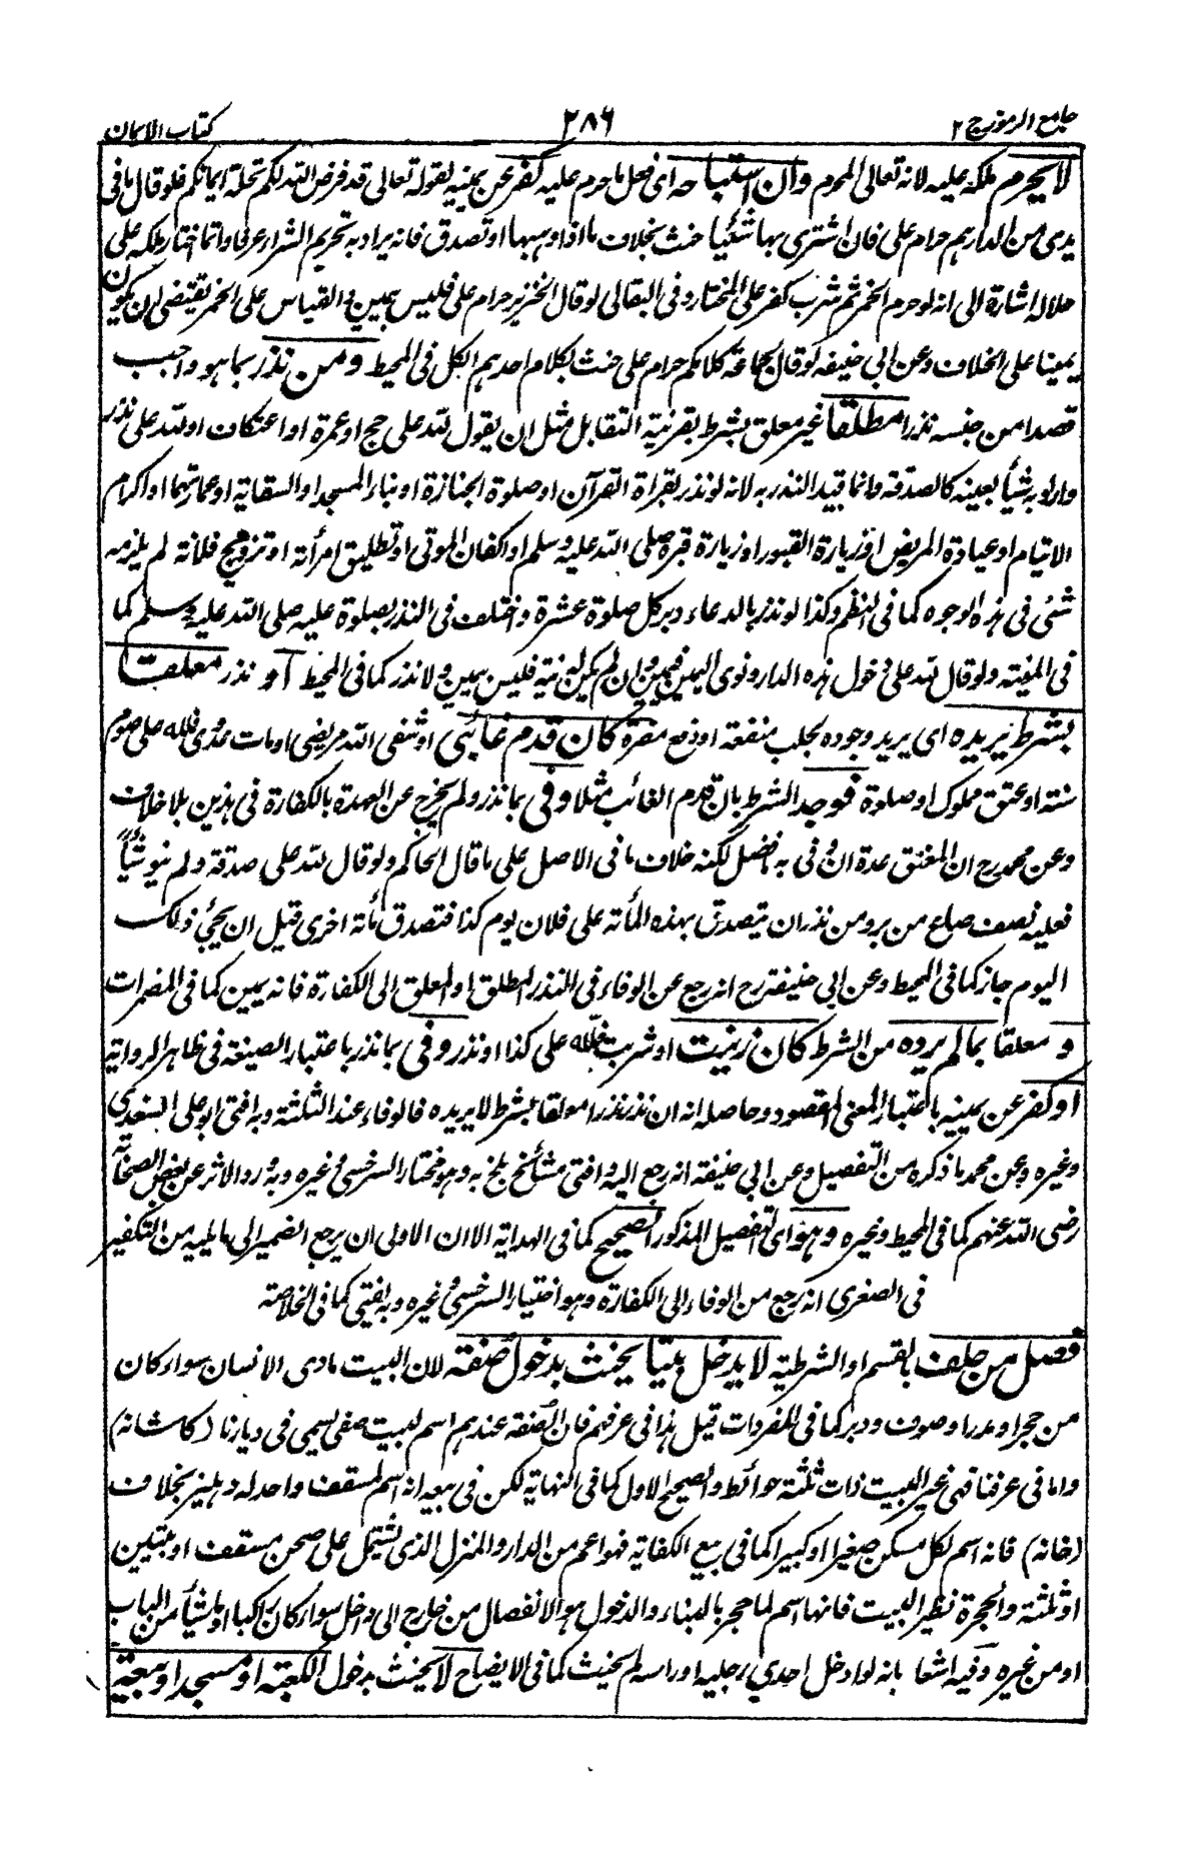 جامع الرموز ج ٢
٢٨٦
كتاب الايمان
لا يحرم ملكه عليه لانه تعالى المحرم وان استباحه اى فعل ما حرم عليه كفر عن يمينه لقوله تعالى قد فرض الله لكم تحلة ايمانكم فلو قال ما فى
يدى من الدراهم حرام على فان اشترى بها شيئا حنث بخلاف ما اذا وهبها او تصدق فانه يراد به تحريم الشراء عرفا وانما اختار ملكه على
حلاله اشارة الى انه لو حرم الخمر ثم شرب كفر على المختار وفى البقالى لو قال الخنزير حرام على فليس بيمين والقياس على الخمر يقتضى ان يكون
يمينا على الخلاف وعن ابى حنيفه لو قال لجماعة كلامكم حرام على حنث بكلام احدهم الكل فى المحيط ومن نذر بما هو واجب
قصدا من جنسه نذرا مطلقا غير معلق بشرط بقرينة التقابل مثل ان يقول لله على حج او عمرة او اعتكاف او لله على نذر
واراد به شيأ بعينه كالصدقة وانما قيد النذر به لانه لو نذر بقراة القرآن او صلوة الجنازة او بناء المسجد او السقاية او عمارتهما او اكرام
الايتام او عيادة المريض او زيارة القبور او زيارة قبره صلى الله عليه وسلم او اكفان الموتى او تطليق امرأته او تزويج فلانة لم يلزمه
شئ فى هذه الوجوه كما فى النظم وكذا لو نذر بالدعاء دبر كل صلوة عشرة واختلف فى النذر بصلوة عليه صلى الله عليه وسلم كما
فى المنية ولو قال لله على دخول هذه الدار ونوى اليمين فيمين وان لم يكن له نية فليس بيمين ولا نذر كما فى المحيط او نذر معلقا
بشرط يريده اى يريد وجوده لجلب منفعة او دفع مضرة كان قدم غائبى او شفى الله مريضى او مات عدوى فلله على صوم
سنة او عتق مملوك او صلوة فوجد الشرط بان قدم الغائب مثلا وفى بما نذر ولم يخرج عن العهدة بالكفارة فى هذين بلا خلاف
وعن محمد رح ان المعلق عدة ان وفى به افضل لكنه خلاف ما فى الاصل على ما قال الحاكم ولو قال لله على صدقة ولم ينو شيأ
فعليه نصف صاع من بر ومن نذر ان يتصدق بهذه المأة على فلان يوم كذا فتصدق مأة اخرى قبل ان يجئ ذلك
اليوم جاز كما فى المحيط وعن ابى حنيفة رح انه رجع عن الوفاء فى النذر المطلق او المعلق الى الكفارة فانه يمين كما فى المضمرات
و معلقا بما لم يرده من الشرط كان زنيت او شربت فلله على كذا او نذر وفى بما نذر باعتبار الصيغة فى ظاهر الرواية
او كفر عن يمينه باعتبار المعنى المقصود وحاصله انه ان نذر نذرا معلقا بشرط لا يريده فالوفاء عند الثلثة وبه افتى ابو على السغدى
وغيره وعن محمد ما ذكره من التفصيل وعن ابى حنيفة انه رجع اليه وافتى مشائخ بلخ به وهو مختار السرخسى وغيره وبه ورد الاثر عن بعض الصحابة
رضى الله عنهم كما فى المحيط وغيره وهو اى التفصيل المذكور الصحيح كما فى الهداية الا ان الاولى ان يرجع الضمير الى ما يليه من التكفير
فى الصغرى انه رجع من الوفاء الى الكفارة وهو اختيار السرخسى وغيره وبه يفتى كما فى الخلاصة
فصل من حلف بالقسم او الشرطية لا يدخل بيتا يحنث بدخول صفته لان البيت مأوى الانسان سواء كان
من حجر او مدر او صوف ووبر كما فى المفردات قيل هذا فى عرفهم فان الصفة عندهم اسم لبيت صفى يسمى فى ديارنا (كاشانه)
واما فى عرفنا فهى غير البيت ذات ثلثة حوائط والصحيح الاول كما فى النهاية لكن فى بيعه انه اسم لمسقف واحد له دهليز بخلاف
(خانه) فانه اسم لكل مسكن صغيرا او كبيرا كما فى بيع الكفاية فهو اعم من الدار والمنزل الذى يشتمل على صحن مسقف او بيتين
او ثلثة والحجرة نظير البيت فانها اسم لما حجر بالبناء والدخول هو الانفصال من خارج الى داخل سواء كان راكبا او ماشيأ من الباب
او من غيره وفيه اشعا بانه لو ادخل احدى رجليه او راسه لم يحنث كما فى الايضاح لا يحنث بدخول الكعبة او مسجد او بيعة